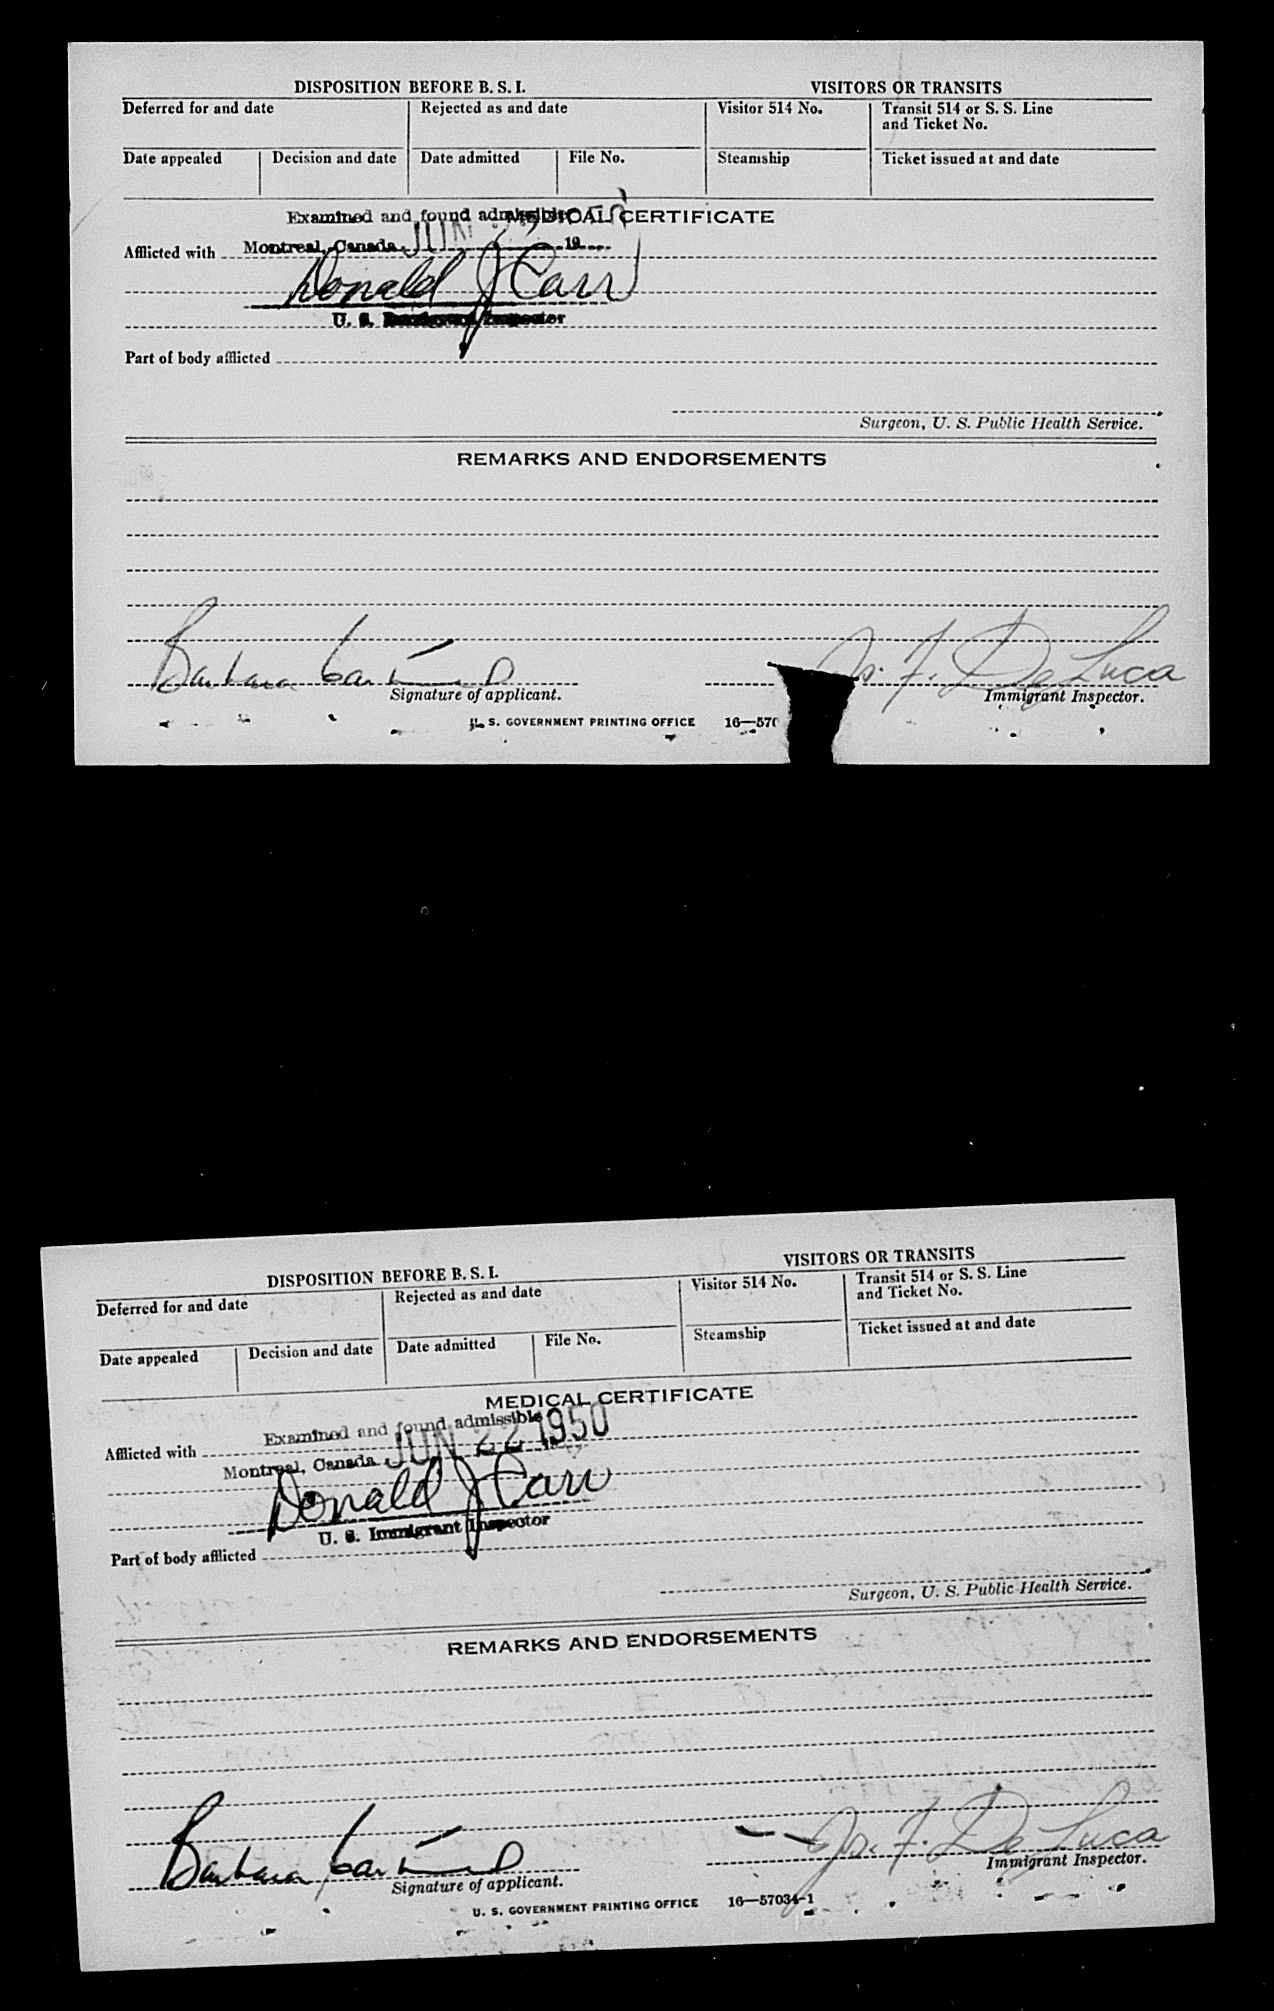 DISPOSITION BEFORE B. S. I. VISITORS OR TRANSITS
Deferred for and date Rejected as and date Visitor 514 No. Transit 514 or S. S. Line
and Ticket No.
Date appealed Decision and date Date admitted File No. Steamship Ticket issued at and date
Examined and found admissible MEDICAL CERTIFICATE
Afflicted with Montreal, Canada, JUN 19
Donald J Carr
U. S. Immigrant Inspector
Part of body afflicted
Surgeon, U. S. Public Health Service.
REMARKS AND ENDORSEMENTS
Barbara Jo. F. De Luca
Signature of applicant. Immigrant Inspector.
U. S. GOVERNMENT PRINTING OFFICE 16—570
DISPOSITION BEFORE B. S. I. VISITORS OR TRANSITS
Deferred for and date Rejected as and date Visitor 514 No. Transit 514 or S. S. Line
and Ticket No.
Date appealed Decision and date Date admitted File No. Steamship Ticket issued at and date
MEDICAL CERTIFICATE
Afflicted with Examined and found admissible
Montreal, Canada JUN 22 1950
Donald J Carr
U. S. Immigrant Inspector
Part of body afflicted
Surgeon, U. S. Public Health Service.
REMARKS AND ENDORSEMENTS
Barbara Jo. F. De Luca
Signature of applicant. Immigrant Inspector.
U. S. GOVERNMENT PRINTING OFFICE 16—57034-1